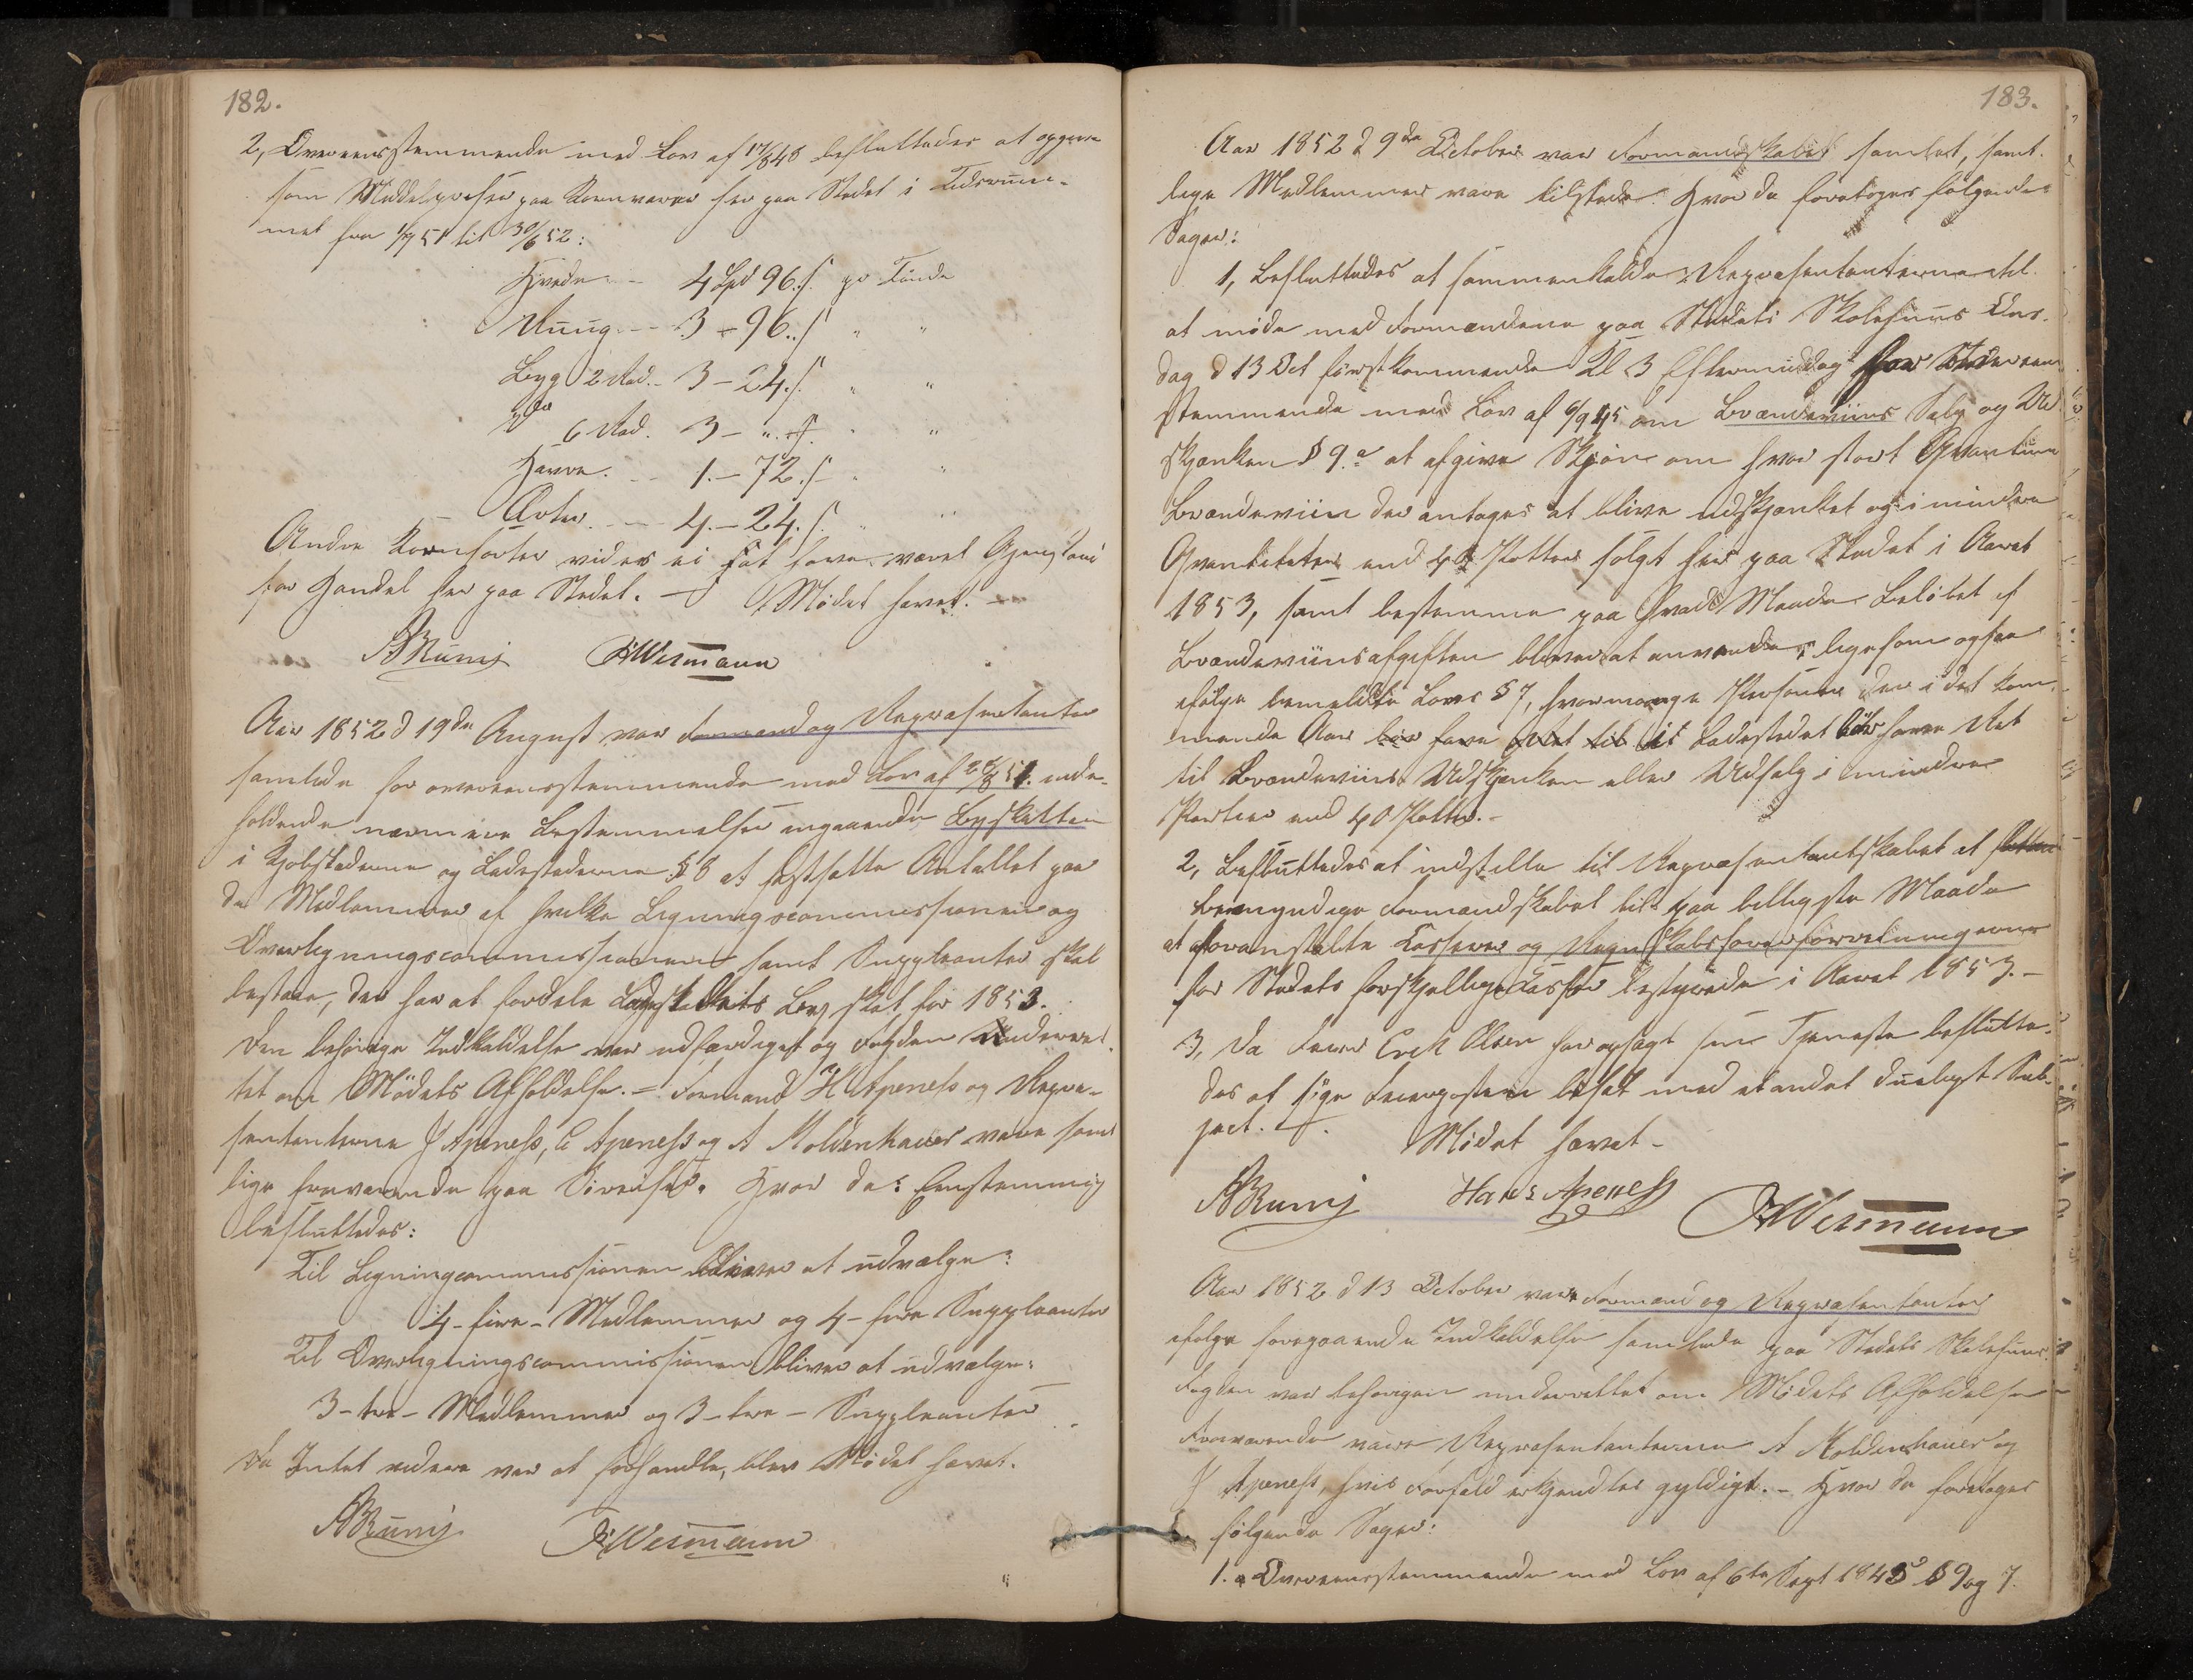 182.
2, Overeensstemmende med Lov af 17/8 48 besluttedes at opgive
som Middelpriser paa Kornvarer her paa Stedet i Tidsrum-
met fra 1/7 51 til 30/6 52:
Hvede - - 4 Spd 96 s. pr Tønde
Rug - - 3 - 96. s. " "
Byg 2 Rad. - 3 - 24. s. " "
do 6 Rad. 3 - ". s. " "
Havre. - - 1. - 72. s. " "
Erter. - - 4. - 24. s. " "
Andre Kornsorter vides ei at have været Gjenstand
for Handel her paa Stedet. - Mödet hævet. -
Aar 1852 d 19de August var Formænd og Repræsentanter
samlede for overeensstemmende med Lov af 51 inde-
holdende nærmere Bestemmelser angaaende Byskatten
i Kjøbstæderne og Ladestederne § 8 at fastsætte Antallet paa
de Medlemmer af hvilke Ligningscommissionen og
Overligningscommissionen samt Suppleanter skal
bestaae, der har at fordele Ladestedets Byskat for 1853.
Den behörige Indkaldelse var udfærdiget og Fogden underret-
tet om Mödets Afholdelse. - Formand H Apeness og Repræ-
sentanterne J Apeness, C Apeness og A Moldenhauer vare samt-
lige fraværende paa Söreiser. Hvor da: Eenstemmig
besluttedes:
Til Ligningcommissionen bliver at udvælge:
4 - fire - Medlemmer og 4 - fire Suppleanter
Til Overligningscommissionen bliver at udvælge:
3 - tre - Medlemmer og 3 - tre - Suppleanter
Da Intet videre var at forhandle, blev Mödet hævet.
183.
Aar 1852 d 9de October var Formandskabet samlet, samt-
lige Medlemmer vare tilstede. Hvor da foretoges følgende
Sager:
1, Besluttedes at sammenkalde Repræsentanterne til
at möde med Formændene paa Stedets Skolehuus Ons-
dag d 13 Oct førstkommende Kl 3 Eftermiddag for overeens-
stemmende med Lov af 6/9 45 om Brændeviins Salg og Ud-
skjænken § 9. a at afgive Skjøn om hvor stort Qvantum
Brændeviin der antages at blive udskjænket og i mindre
Qvantiteter end 40 Potter solgt her paa Stedet i Aaret
1853, samt bestemme paa hvad Maade Beløbet af
Brændeviinsafgiften bliver at anvende, ligesom ogsaa
ifølge bemeldte Lovs § 7, hvormange Personer der i det kom-
mende Aar bør have Ret til i Ladestedet bør have Ret
til Brændeviins Udskjænken eller Udsalg i mindre
Partier end 40 Potter. -
2, Besluttedes at indstille til Repræsentantskabet at
bemyndige Formandskabet til paa billigste Maade
at foranstalte Casserer og Regnskabsførerforretningerne
for Stedets forskjellige Casser bestyrede i Aaret 1853. -
3, Da Feier Erik Olsen har opsagt sin Tjeneste beslutte-
des at søge Feierposten besat med et andet dueligt Sub-
ject. - Mödet hævet -
Hans Apeness
Aar 1852 d 13 October vare Formænd og Repræsentanter
ifølge foregaaende Indkaldelse samlede paa Stedets Skolehuus.
Fogden var behörigen underrettet om Mödets Afholdelse
Fraværende vare Repræsentanterne A Moldenhauer og
J Apeness, hvis Forfald erkjendtes gyldigt. - Hvor da foretoges
følgende Sager:
1. a Overeensstemmende med Lov af 6te Sept 1845 § 9 og 7.